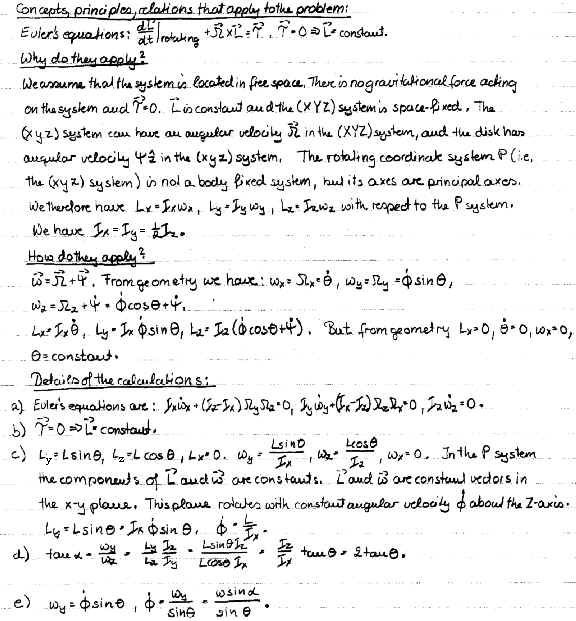 Concepts, principles, relations that apply to the problem:
Euler's equations: dL⃗/dt|rotating + Ω⃗×L⃗ = τ⃗. τ⃗=0 ⇒ L⃗ = constant.
Why do they apply?
We assume that the system is located in free space. There is no gravitational force acting
on the system and τ⃗=0. L⃗ is constant and the (XYZ) system is space-fixed. The
(xyz) system can have an angular velocity Ω⃗ in the (XYZ) system, and the disk has
angular velocity ψ̇ẑ in the (xyz) system. The rotating coordinate system P (i.e,
the (xyz) system) is not a body fixed system, but its axes are principal axes.
We therefore have Lx=Ixωx, Ly=Iyωy, Lz=Izωz with respect to the P system.
We have Ix=Iy=½Iz.
How do they apply?
ω⃗=Ω⃗+ψ̇⃗. From geometry we have: ωx=Ωx=θ̇, ωy=Ωy=φ̇sinθ,
ωz=Ωz+ψ̇=φ̇cosθ+ψ̇.
Lx=Ixθ̇, Ly=Ixφ̇sinθ, Lz=Iz(φ̇cosθ+ψ̇). But from geometry Lx=0, θ̇=0, ωx=0,
θ=constant.
Details of the calculations:
a) Euler's equations are: Ixω̇x+(Iz-Ix)ΩyΩz=0, Iyω̇y+(Ix-Iz)ΩzΩx=0, Izω̇z=0.
b) τ⃗=0 ⇒ L⃗=constant.
c) Ly=Lsinθ, Lz=Lcosθ, Lx=0. ωy=Lsinθ/Ix, ωz=Lcosθ/Iz, ωx=0. In the P system
the components of L⃗ and ω⃗ are constants. L⃗ and ω⃗ are constant vectors in
the x-y plane. This plane rotates with constant angular velocity φ̇ about the Z-axis.
Ly=Lsinθ=Ixφ̇sinθ. φ̇=L/Ix.
d) tanα=ωy/ωz=Ly Iz/Lz Iy=LsinθIz/LcosθIx=Iz/Ix tanθ=2tanθ.
e) ωy=φ̇sinθ, φ̇=ωy/sinθ=ωsinα/sinθ.